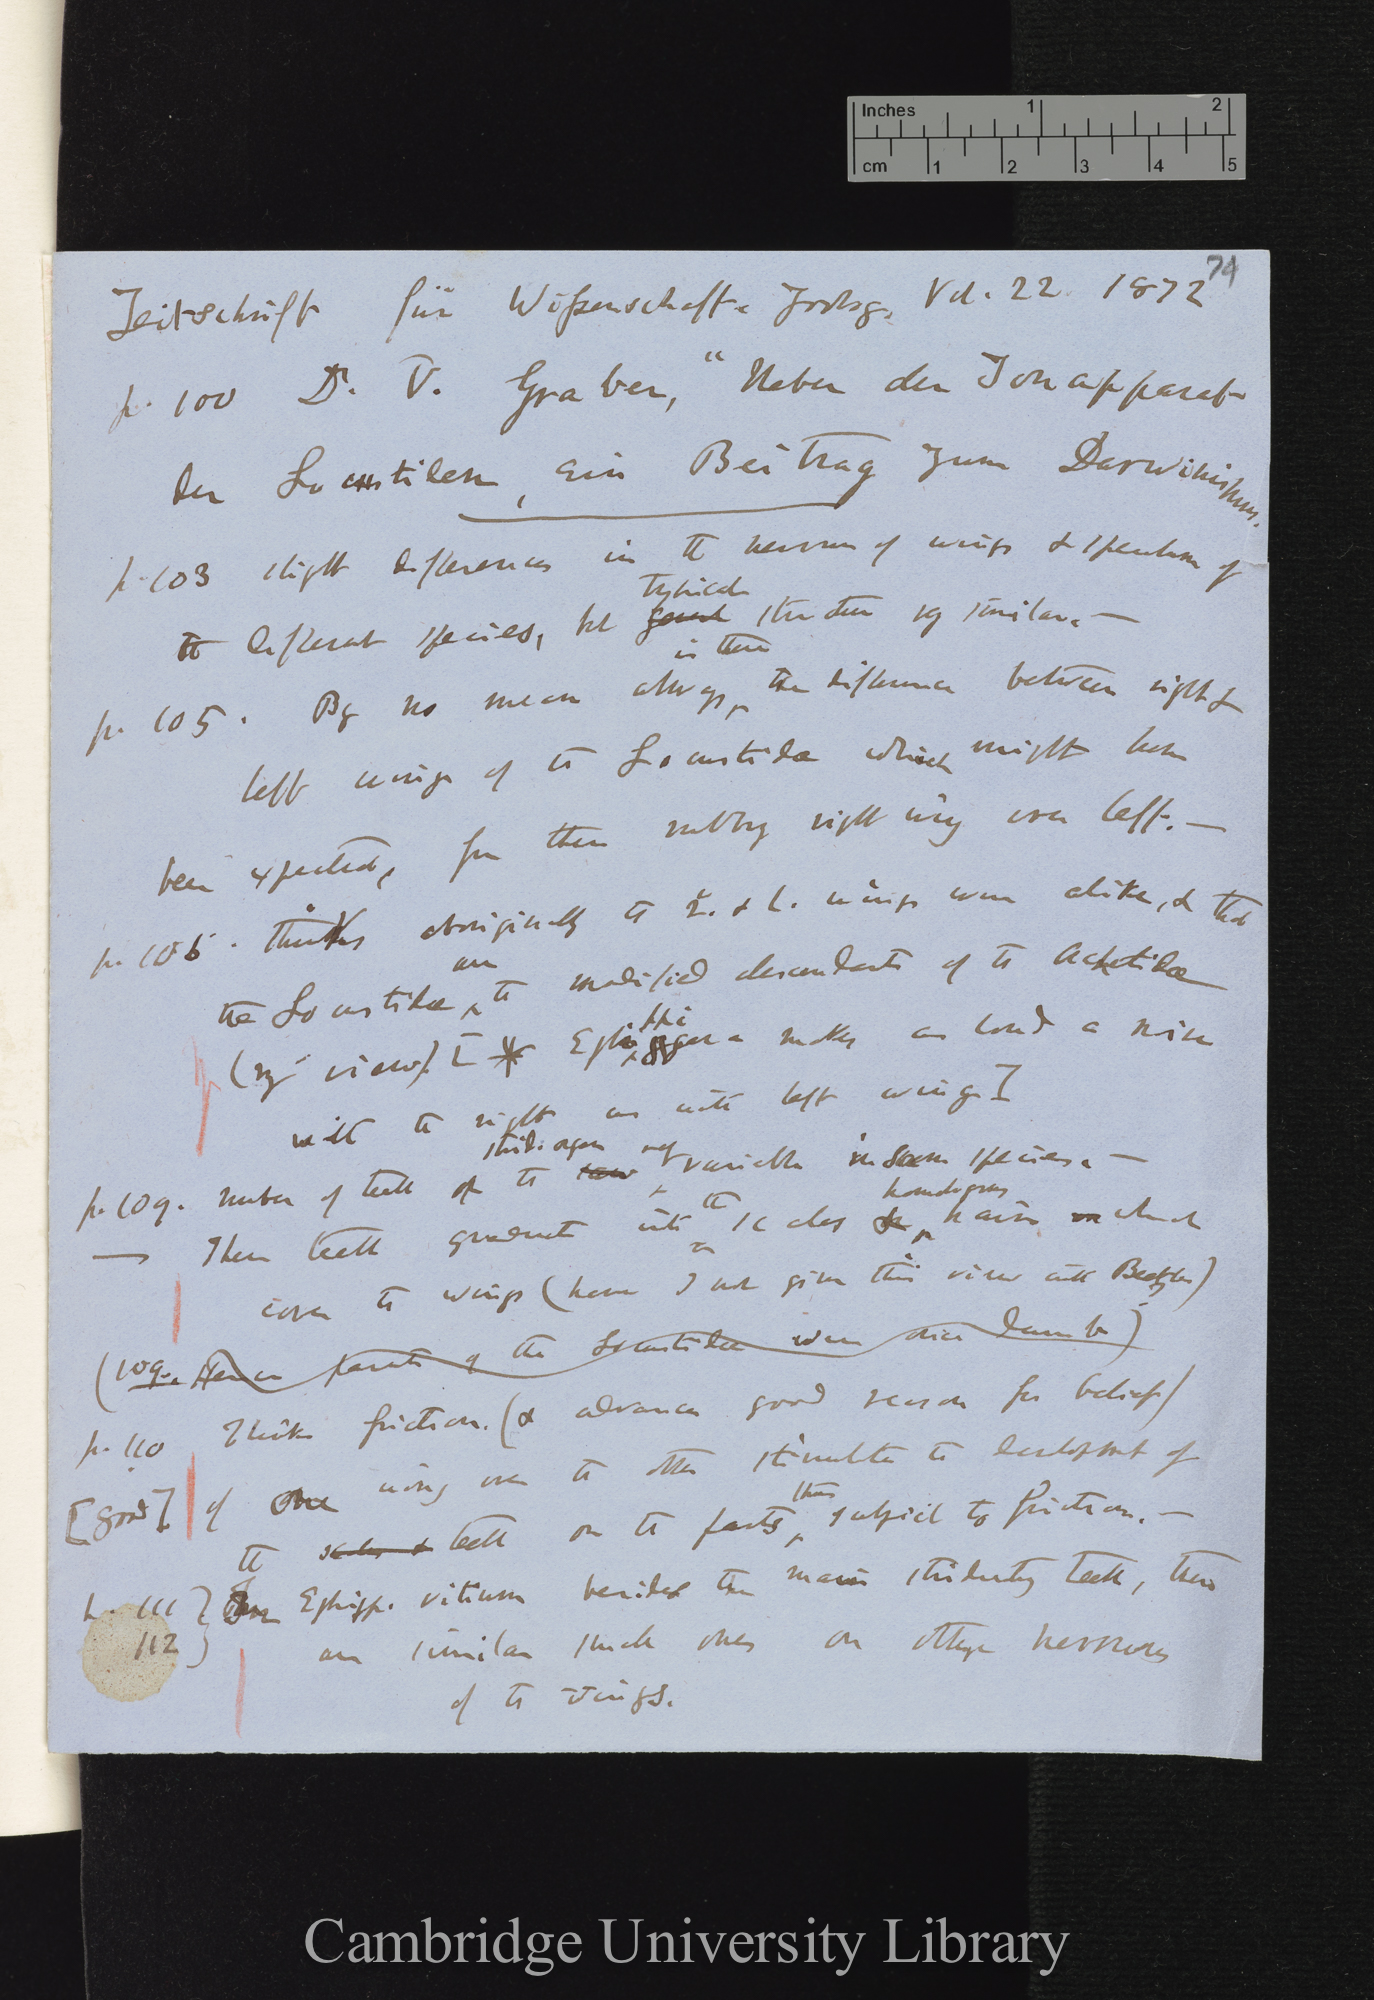 Inches 1 2
cm 1 2 3 4 5
74
Zeitschrift für Wissenschaft. Zoolog. Vol. 22 1872
p. 100 Dr. V. Graber, "Ueber den Tonapparat
der Locustiden, ein Beitrag zum Darwinismus.
p. 103 slight differences in the nervures of wings & speculum of
typical
the different species, but general structure vy similar. —
in there
p. 105. By no means always the difference between right &
left wings of the Locustidæ which might have
been expected, from there rubbing right wing over left. —
p. 106. thinks aboriginally the r. & l. wings were alike, & that
are
the Locustidæ the modified descendants of the Achetidæ
ppi
(my view) [* Ephigera makes as loud a noise
with the right as with left wing]
strid. organ
p. 109. number of teeth of the variable in same species. —
homologous
— These teeth graduate into the scales or hairs which
on
cover the wings (have I not given this view with Beetles)
(109. Hence parents of the Locustidæ were once dumb)
p. 110 Thinks friction. (& advances good reason for belief)
[Good] of one wing over the other stimulates the development of
thus
the scales & teeth on the parts subject to friction. —
p. 111 } In Ephipp. vitium besides the main stridulating teeth, there
112 } are similar small ones on other nervures
of the wings.
Cambridge University Library